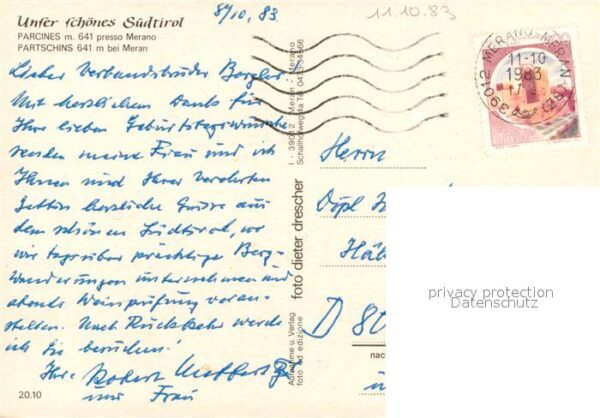 Unser schönes Südtirol
PARCINES m. 641 presso Merano
PARTSCHINS 641 m bei Meran
8/10, 83
11.10.83
Lieber Verbandsbruder
Mit herzlichem Dank für
Ihre lieben Geburtstagswünsche
senden meine Frau und ich
Ihnen und Ihrer verehrten
Gattin herzliche Grüsse aus
dem schönen Südtirol, wo
wir tagsüber prächtige Berg-
wanderungen unternehmen und
abends Weinprüfung veran-
stalten. Nach Rückkehr werde
ich Sie
Ihr Robert
und Frau
20.10
I - 39012 Meran - Merano
foto dieter drescher
Aufnahme u. Verlag
foto ed edizione
39012 MERANO-MERAN
11-10
1983
(BZ)
Herrn
Dipl
D 80
nac
privacy protection
Datenschutz